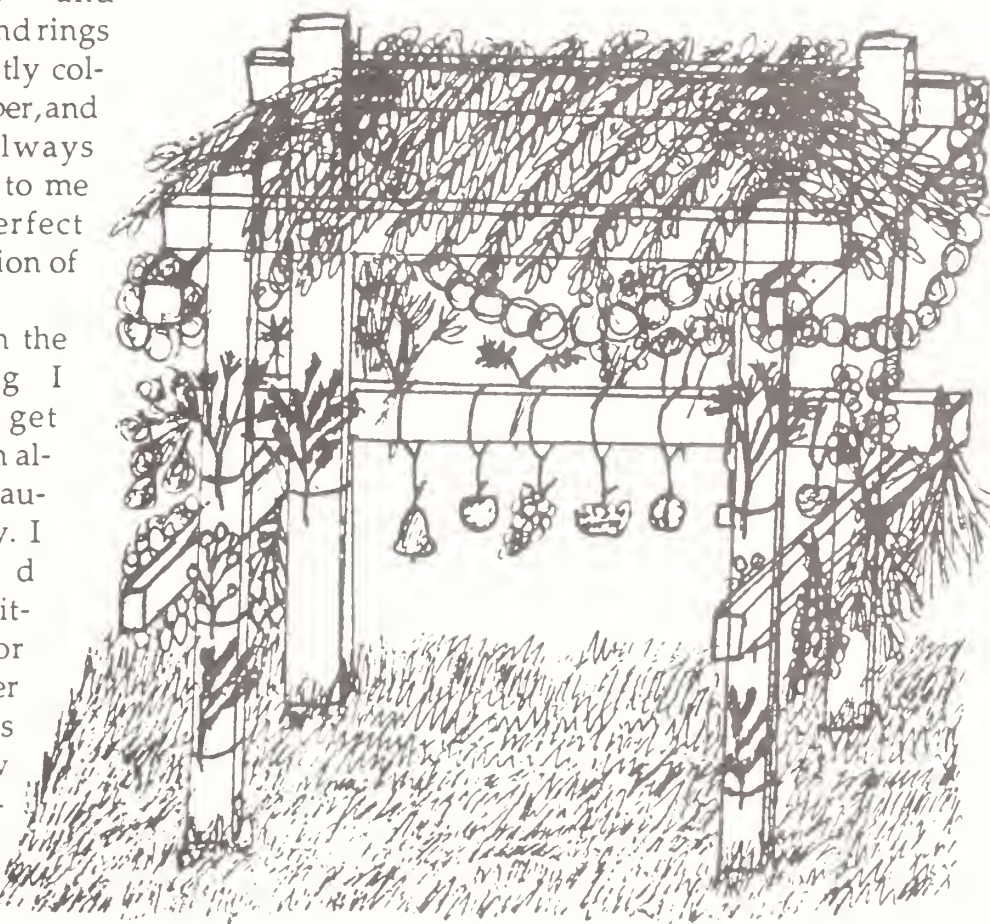 and
nd rings
tly col-
per, and
lways
to me
erfect
ion of
n the
g I
get
n al-
au-
y. I
d
it-
or
er
s